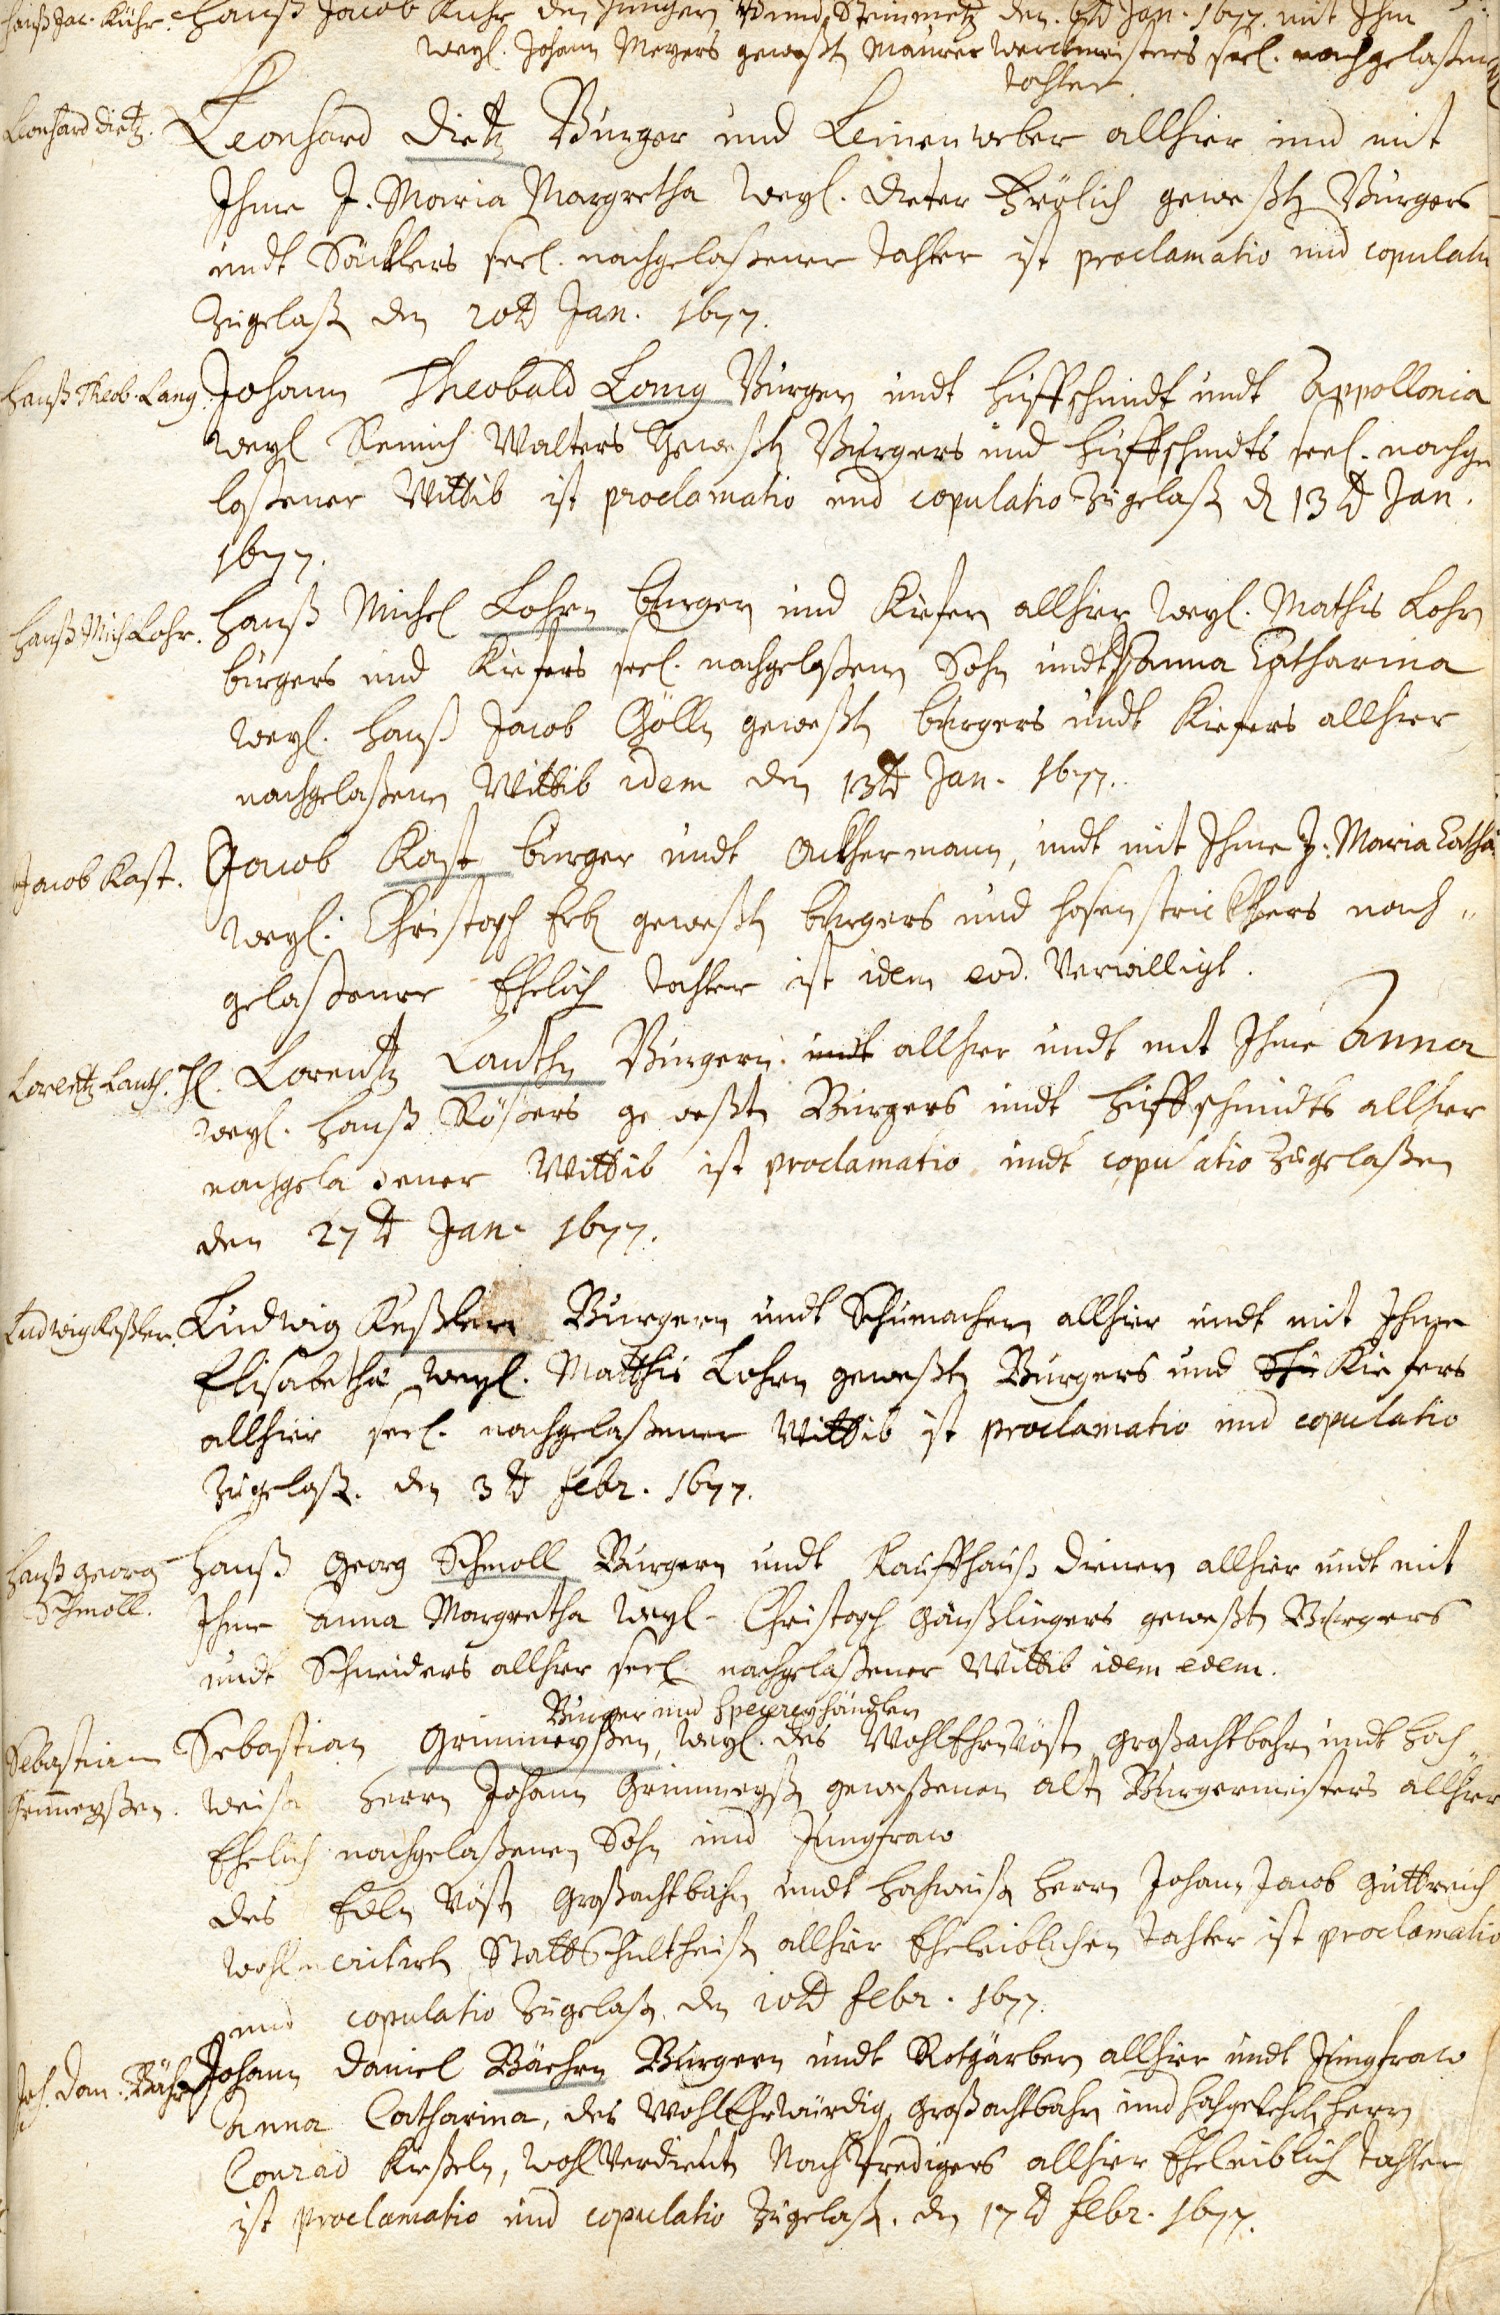 Hanß Jac. Kühr. Hanß Jacob Kuhr den Jungen und Steinmetz den 6t Jan. 1677. mit Ihm
weyl. Johann Meyers geweßt Maurer werckmeisters seel. nachgelaßene
tochter.
Leonhard Dietz. Leonhard Dietz Burger und Leinenweber allhier und mit
Ihme J. Maria Margretha weyl. Dieter Frölich geweßt Burgers
undt Säcklers seel. nachgelaßener Tochter ist proclamatio und copulatio
zugelaß den 20t Jan. 1677.
Hanß Theob. Lang. Johann Theobald Lang Burger undt Huffschmidt undt Appollonia
weyl Walters Geweßt Burgers und Huffschmidts seel. nachge
laßener Wittib ist proclamatio und copulatio zugelaß d 13t Jan.
1677.
Hanß Mich Lohr. Hanß Michel Lohrn burgern und Kiefern allhier weyl. Mathis Lohrn
burgers und Kiefers seel. nachgelaßenen Sohn undt Anna Catharina
weyl. Hanß Jacob Gölln geweßt burgers undt Kiefers allhier
nachgelaßenen Wittib idem den 13t Jan. 1677.
Jacob Kast. Jacob Kast burger undt Ackhermann, undt mit Ihme J. Maria Catha.
weyl. Christoph Erb geweßt burgers und hosenstrickhers nach„
gelaßener Ehelich tochter ist idem eod. verwilligt.
Lorentz Lauth. H. Lorentz Lauthn Burgern undt allhier undt mit Ihme Anna
weyl. Hanß Rößers geweßt Burgers undt Huffschmidts allhier
nachgelaßener Wittib ist proclamatio undt copulatio zugelaßen
den 27t Jan. 1677.
Ludwig Keßler. Ludwig Keßlern Burgern undt Schumachern allhier undt mit Ihme
Elisabetha weyl. Matthis Lohrn geweßt Burgers und Schu Kiefers
allhier seel. nachgelaßener Wittib ist proclamatio und copulatio
zugelaß. den 3t Febr. 1677.
Hanß Georg Schmoll. Hanß Georg Schmoll Burgern undt Kauffhauß dienern allhier undt mit
Ihme Anna Margretha weyl. Christoph Gänßlingers geweßt Burgers
undt Schneiders allhier seel nachgelaßener Wittib idem edem.
Burger und Specereyhändler
Sebastian Grimmeyßen. Sebastian Grimmeyßen, weyl. des WohlEhrnvöst großachtbahrn undt hoch„
weiß Herrn Johann Grimmeyß geweßenen alt Burgermeisters allhier
Ehelich nachgelaßenen Sohn und Jungfraw
des Edln vöst Großachtbahrn undt hochweiß Herrn Johann Jacob Guttreich
wohlmeritirt StattSchultheiß allhier Eheleiblichen Tochter ist proclamatio
und copulatio zugelaß. den 10t Febr. 1677.
Joh. Dan. Bähr Johann Daniel Bäehrn Burgern undt Rotgärbern allhier undt Jungfraw
Anna Catharina, des WohlEhrwürdig, großachtbahrn und hochgelehrt Herrn
Conrad Kießeln, wohlverdient Nachpredigers allhier Eheleiblich Tochter
ist proclamatio und copulatio zugelaß. den 17t Febr. 1677.